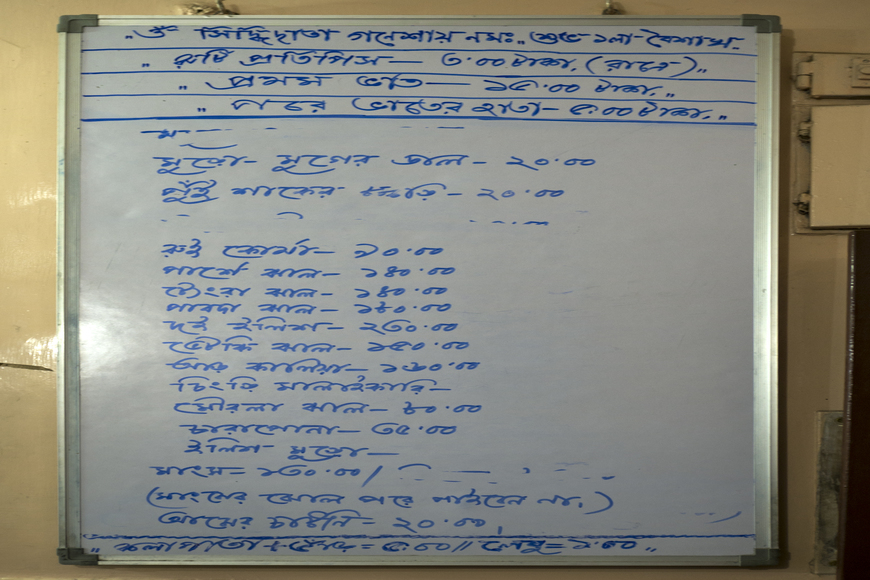 "ওঁ সিদ্ধিদাতা গনেশায় নমঃ" শুভ ১লা বৈশাখ
" রুটি প্রতিপিস — ৩.০০ টাকা, (রাত্রে) "
" প্রথম ভাত — ১৫.০০ টাকা, "
" পরে ভাতের হাতা — ৫.০০ টাকা, "
মুড়ো - মুগের ডাল - ২০.০০
পুঁই শাকের চচ্চড়ি - ২০.০০
রুই কোর্মা - ৯০.০০
পার্শে ঝাল - ১৪০.০০
টেংরা ঝাল - ১৪০.০০
পাবদা ঝাল - ১৮০.০০
দই ইলিশ - ২৩০.০০
ভেটকি ঝাল - ১৫০.০০
আর কালিয়া - ১৬০.০০
চিংড়ি মালাইকারি -
মৌরলা ঝাল - ৮০.০০
চারাপোনা - ৩৫.০০
ইলিশ মুড়ো -
মাংস = ১৩০.০০ /
(মাংসের ঝোল পরে পাইবেন না,)
আমের চাটনি = ২০.০০,
" কলাপাতা + = ৫.০০ // লেবু = ১.০০ "